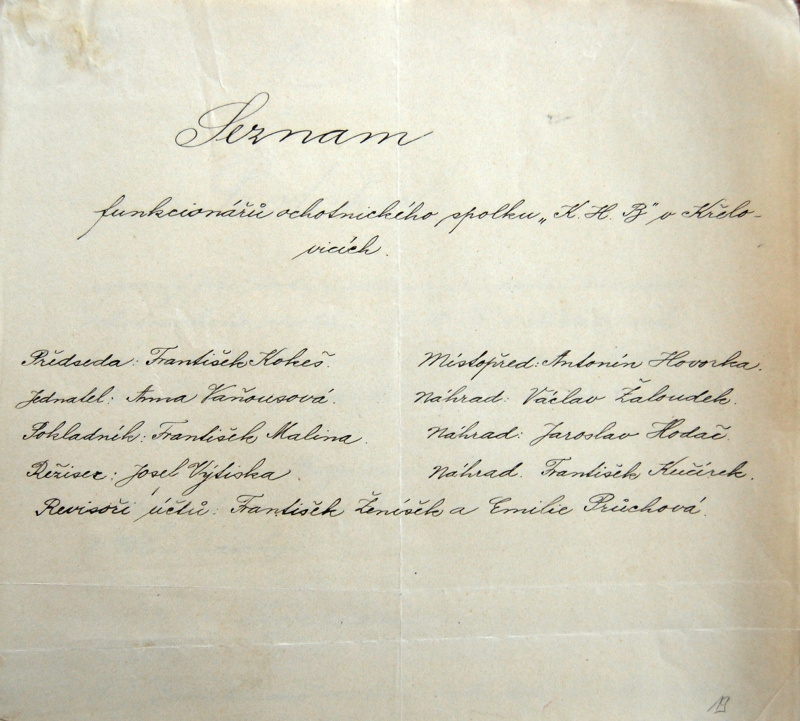 Seznam
funkcionářů ochotnického spolku „K. H. B" v Křelo-
vicích.
Předseda: František Kokeš. Místopřed: Antonín Hovorka.
Jednatel: Anna Vaňousová. Náhrad: Václav Žaloudek.
Pokladník: František Malina. Náhrad: Jaroslav Hodač.
Režiser: Josef Výtiska. Náhrad. František Kučírek.
Revisoři účtů: František Ženíšek a Emilie Průchová.